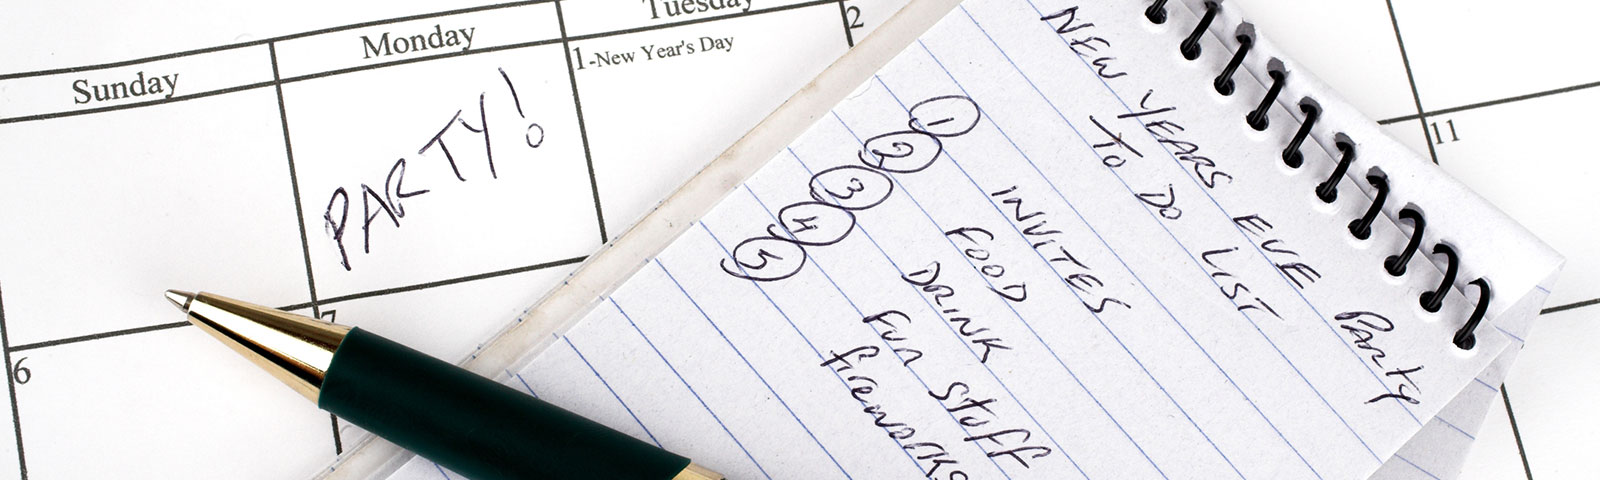 Sunday
Monday
Tuesday
PARTY!
1-New Year's Day
2
6
7
11
NEW YEARS EVE Party
To Do LIST
1 INVITES
2 FOOD
3 DRINK
4 Fun Stuff
5 fireworks